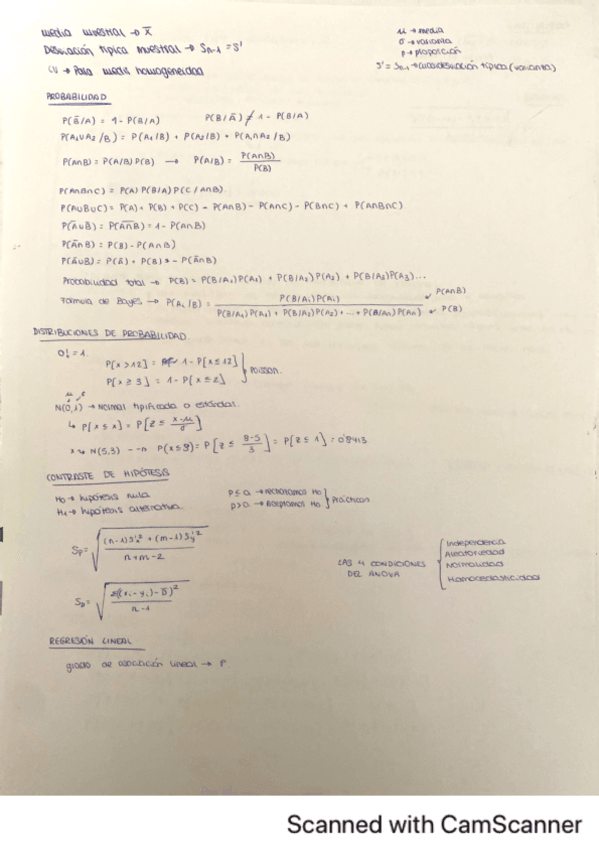 media muestral → x̄
Desviación típica muestral → Sn-1 = S'
CV → Para medir homogeneidad
μ → media
σ → varianza
p → proporción
S' = Sn-1 → cuasidesviación típica (varianza)
PROBABILIDAD
P(B̄/A) = 1 - P(B/A)    P(B/Ā) ≠ 1 - P(B/A)
P(A₁∪A₂/B) = P(A₁/B) + P(A₂/B) + P(A₁∩A₂/B)
P(A∩B) = P(A/B) P(B) → P(A/B) = P(A∩B) / P(B)
P(A∩B∩C) = P(A) P(B/A) P(C/A∩B)
P(A∪B∪C) = P(A) + P(B) + P(C) - P(A∩B) - P(A∩C) - P(B∩C) + P(A∩B∩C)
P(Ā∪B̄) = P(A∩B)‾ = 1 - P(A∩B)
P(Ā∩B) = P(B) - P(A∩B)
P(Ā∪B) = P(Ā) + P(B) - P(Ā∩B)
Probabilidad total → P(B) = P(B/A₁)P(A₁) + P(B/A₂)P(A₂) + P(B/A₃)P(A₃)...
Fórmula de Bayes → P(A₁/B) = P(B/A₁)P(A₁) / P(B/A₁)P(A₁) + P(B/A₂)P(A₂) + ... + P(B/An)P(An)
P(A∩B)
P(B)
DISTRIBUCIONES DE PROBABILIDAD
0! = 1
P[x > 12] = 1 - P[x ≤ 12]
P[x ≥ 3] = 1 - P[x ≤ 2]
Poisson.
N(0,1) → Normal tipificada o estándar
↳ P[x ≤ x] = P[z ≤ x-μ/σ]
x ~ N(5,3) --→ P(x≤8) = P[z ≤ 8-5/3] = P[z ≤ 1] = 0'8413
CONTRASTE DE HIPÓTESIS
H₀ → hipótesis nula
H₁ → hipótesis alternativa
p ≤ α → rechazamos H₀
p > α → aceptamos H₀
Prácticas
Sp = √((n-1)S'x² + (m-1)S'y² / n+m-2)
SD = √(Σ((xi - yi) - D̄)² / n-1)
LAS 4 CONDICIONES
DEL ANOVA
Independencia
Aleatoriedad
Normalidad
Homocedasticidad
REGRESIÓN LINEAL
grado de asociación lineal → r
Scanned with CamScanner